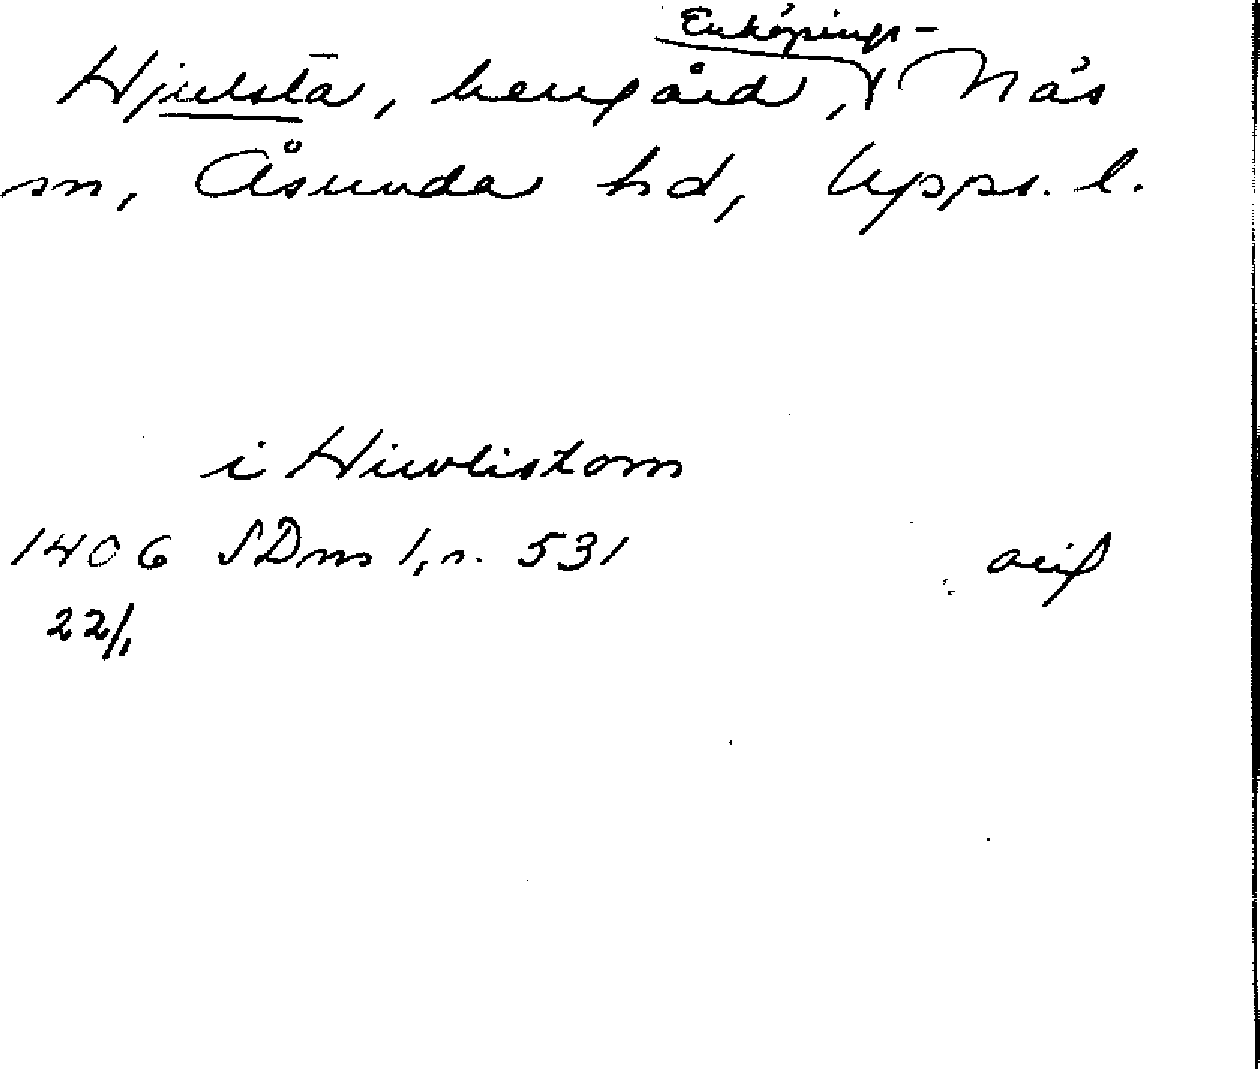 Hjulsta, herrgård, Enköpings-Näs
sn, Åsunda hd, Upps. l.
i Hiwlistom
1406 SDns 1, n. 531 orig
22/1